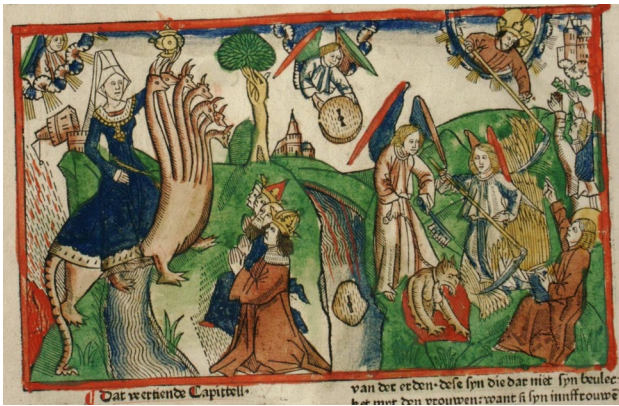 ¶ Dat veertiende Capittell·
van der erden·dese syn die dar niet syn beulec:
ket myt den vrouwen:want si syn innffrouwē